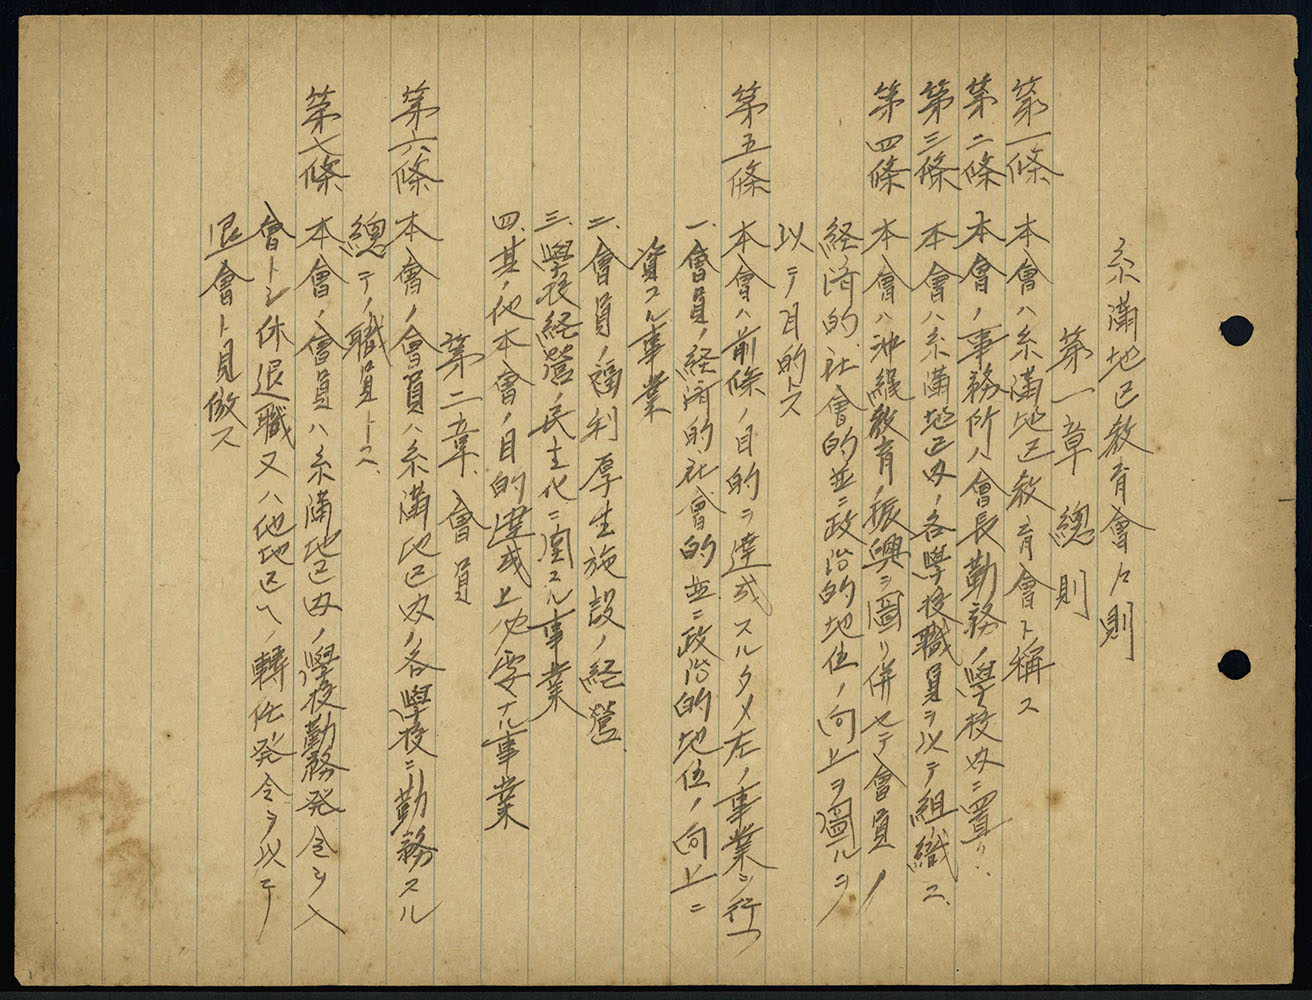 糸滿地区教育會々則
第一章 總則
第一條 本會ハ糸滿地区教育會ト稱ス
第二條 本會ノ事務所ハ會長勤務ノ學校内ニ置ク
第三條 本會ハ糸滿地区内ノ各學校職員ヲ以テ組織ス
第四條 本會ハ沖縄教育ノ振興ヲ圖リ併セテ會員ノ
経済的社會的並ニ政治的地位ノ向上ヲ圖ルヲ
以テ目的トス
第五條 本會ハ前條ノ目的ヲ達成スルタメ左ノ事業ヲ行フ
一、會員ノ経済的社會的並ニ政治的地位ノ向上ニ
資スル事業
二、會員ノ福利厚生施設ノ経營
三、學校経營ノ民主化ニ関スル事業
四、其ノ他本會ノ目的達成上必要ナル事業
第二章 會員
第六條 本會ノ會員ハ糸滿地区内ノ各學校ニ勤務スル
總テノ職員トス
第七條 本會ノ會員ハ糸滿地区内ノ學校勤務発令ヲ入
會トシ休退職又ハ他地区ヘノ轉任発令ヲ以テ
退會ト見做ス